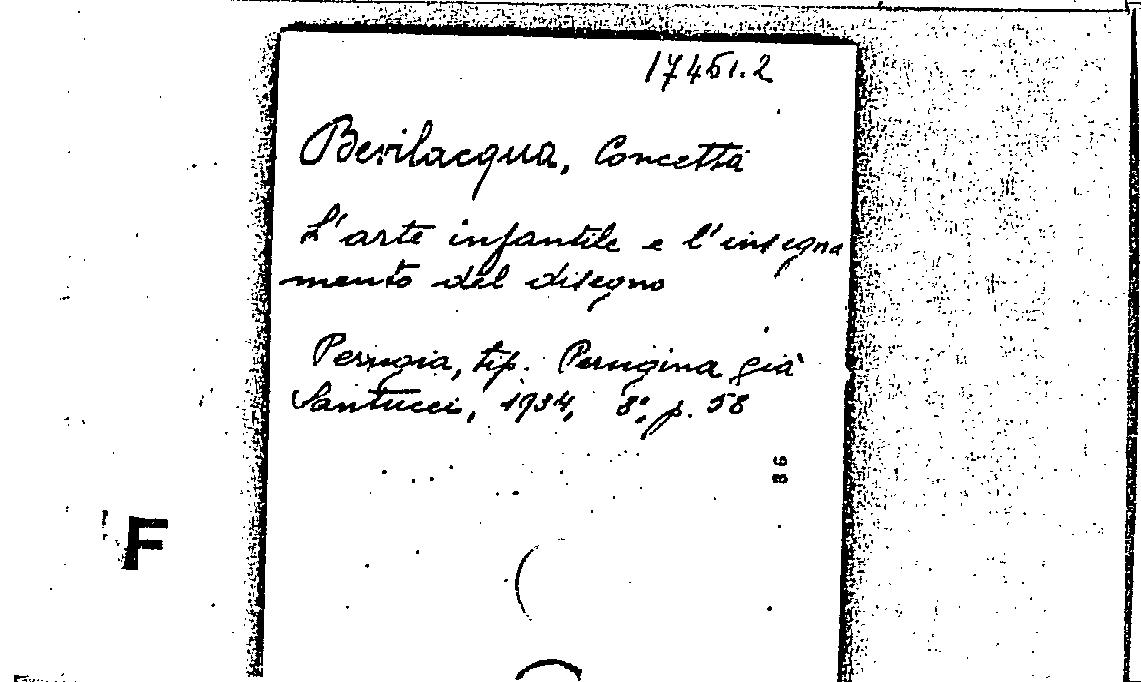 17461.2
Bevilacqua, Concetta
L'arte infantile e l'insegna
mento del disegno
Perugia, tip. Perugina già
Santucci, 1934, 8°, p. 58
86
F